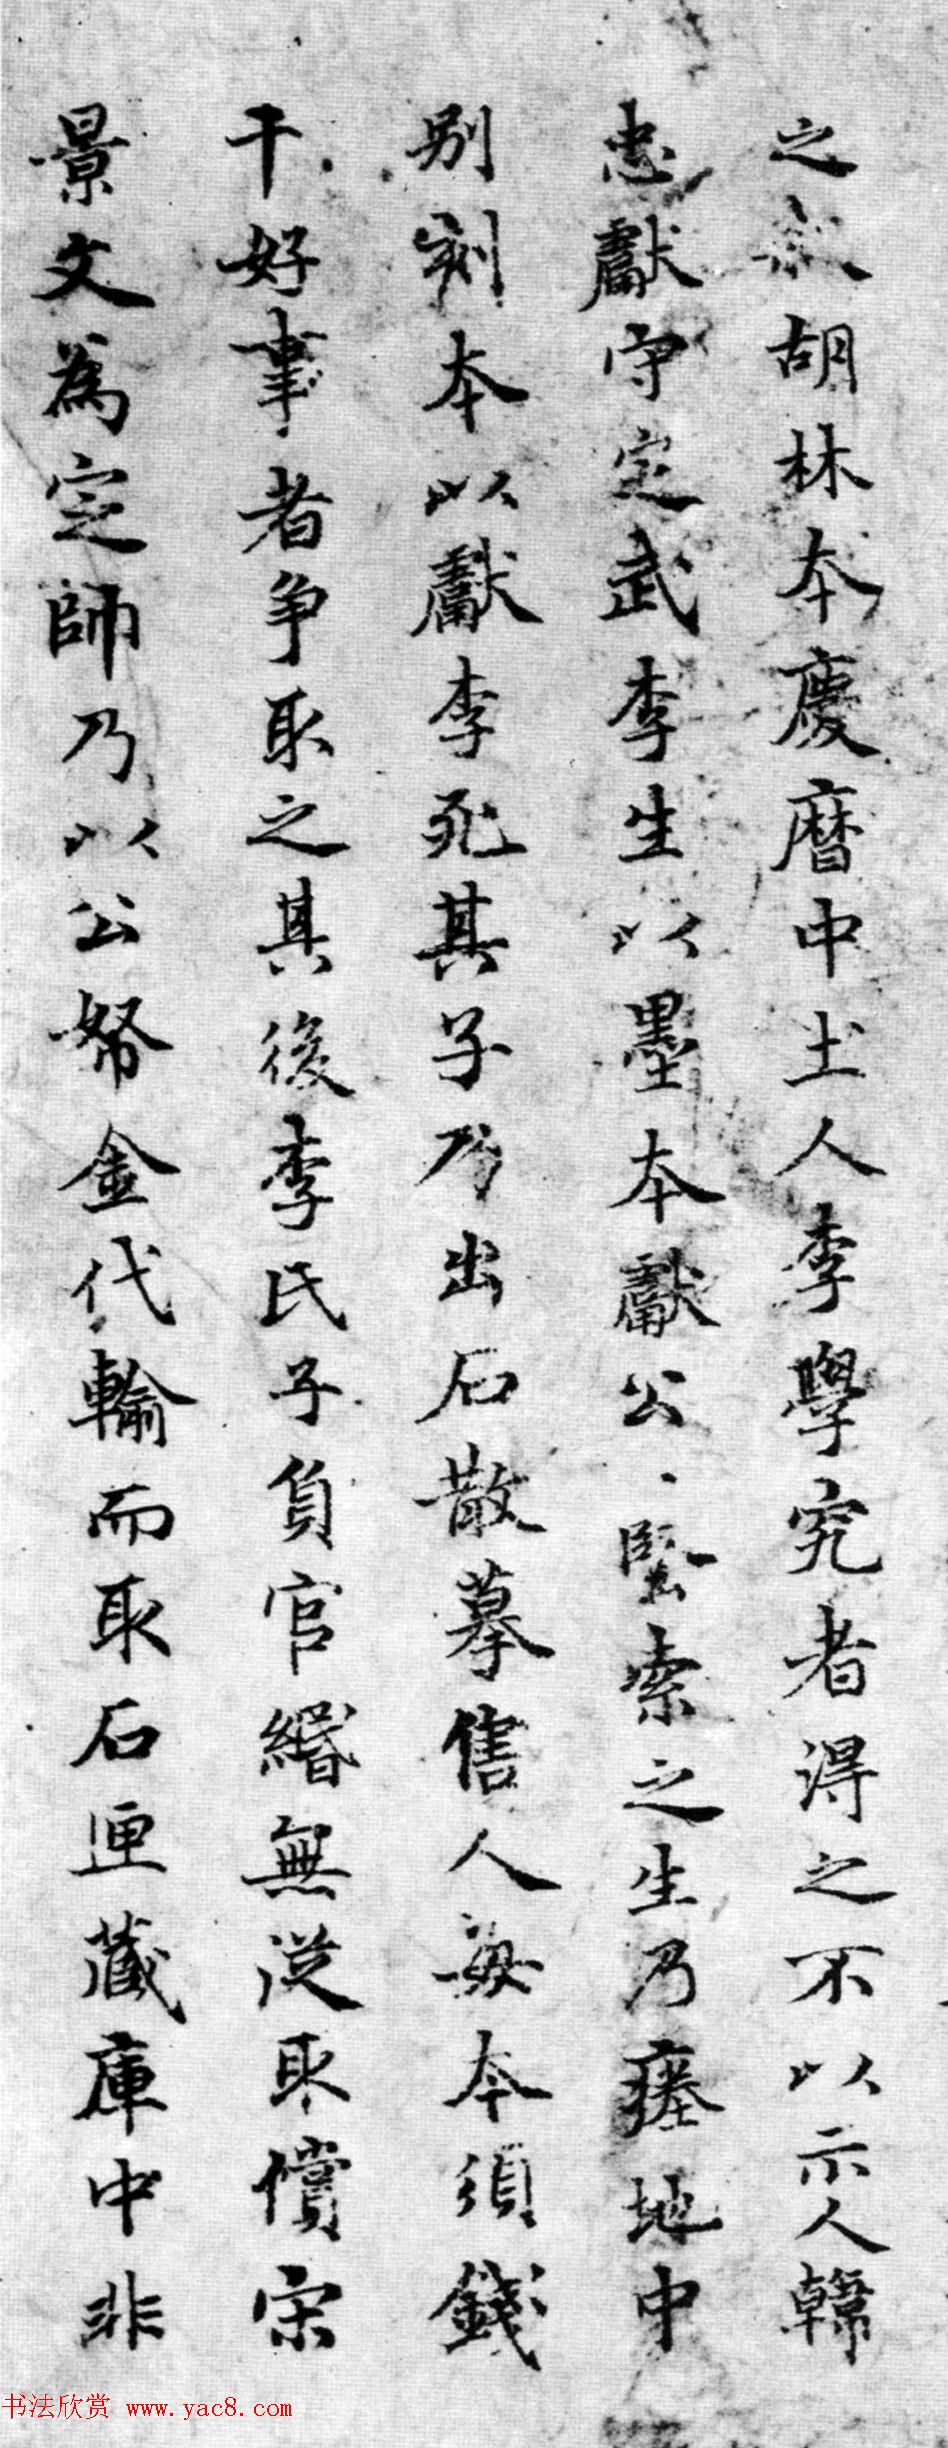 之胡林本慶曆中土人李學究者得之不以示人韓
忠獻守定武李生以墨本獻公、堅索之生乃瘞地中
别刻本以獻李死其子乃出石散摹售人每本須錢
千好事者争取之其後李氏子負官緡無從取償宋
景文為定帥乃以公帑金代輸而取石匣藏庫中非
书法欣赏 www.yac8.com